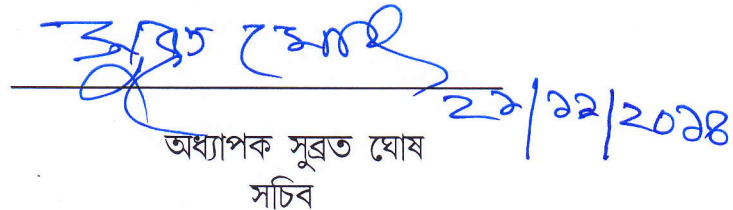 সুব্রত ঘোষ
২১/১২/২০১৪
অধ্যাপক সুব্রত ঘোষ
সচিব